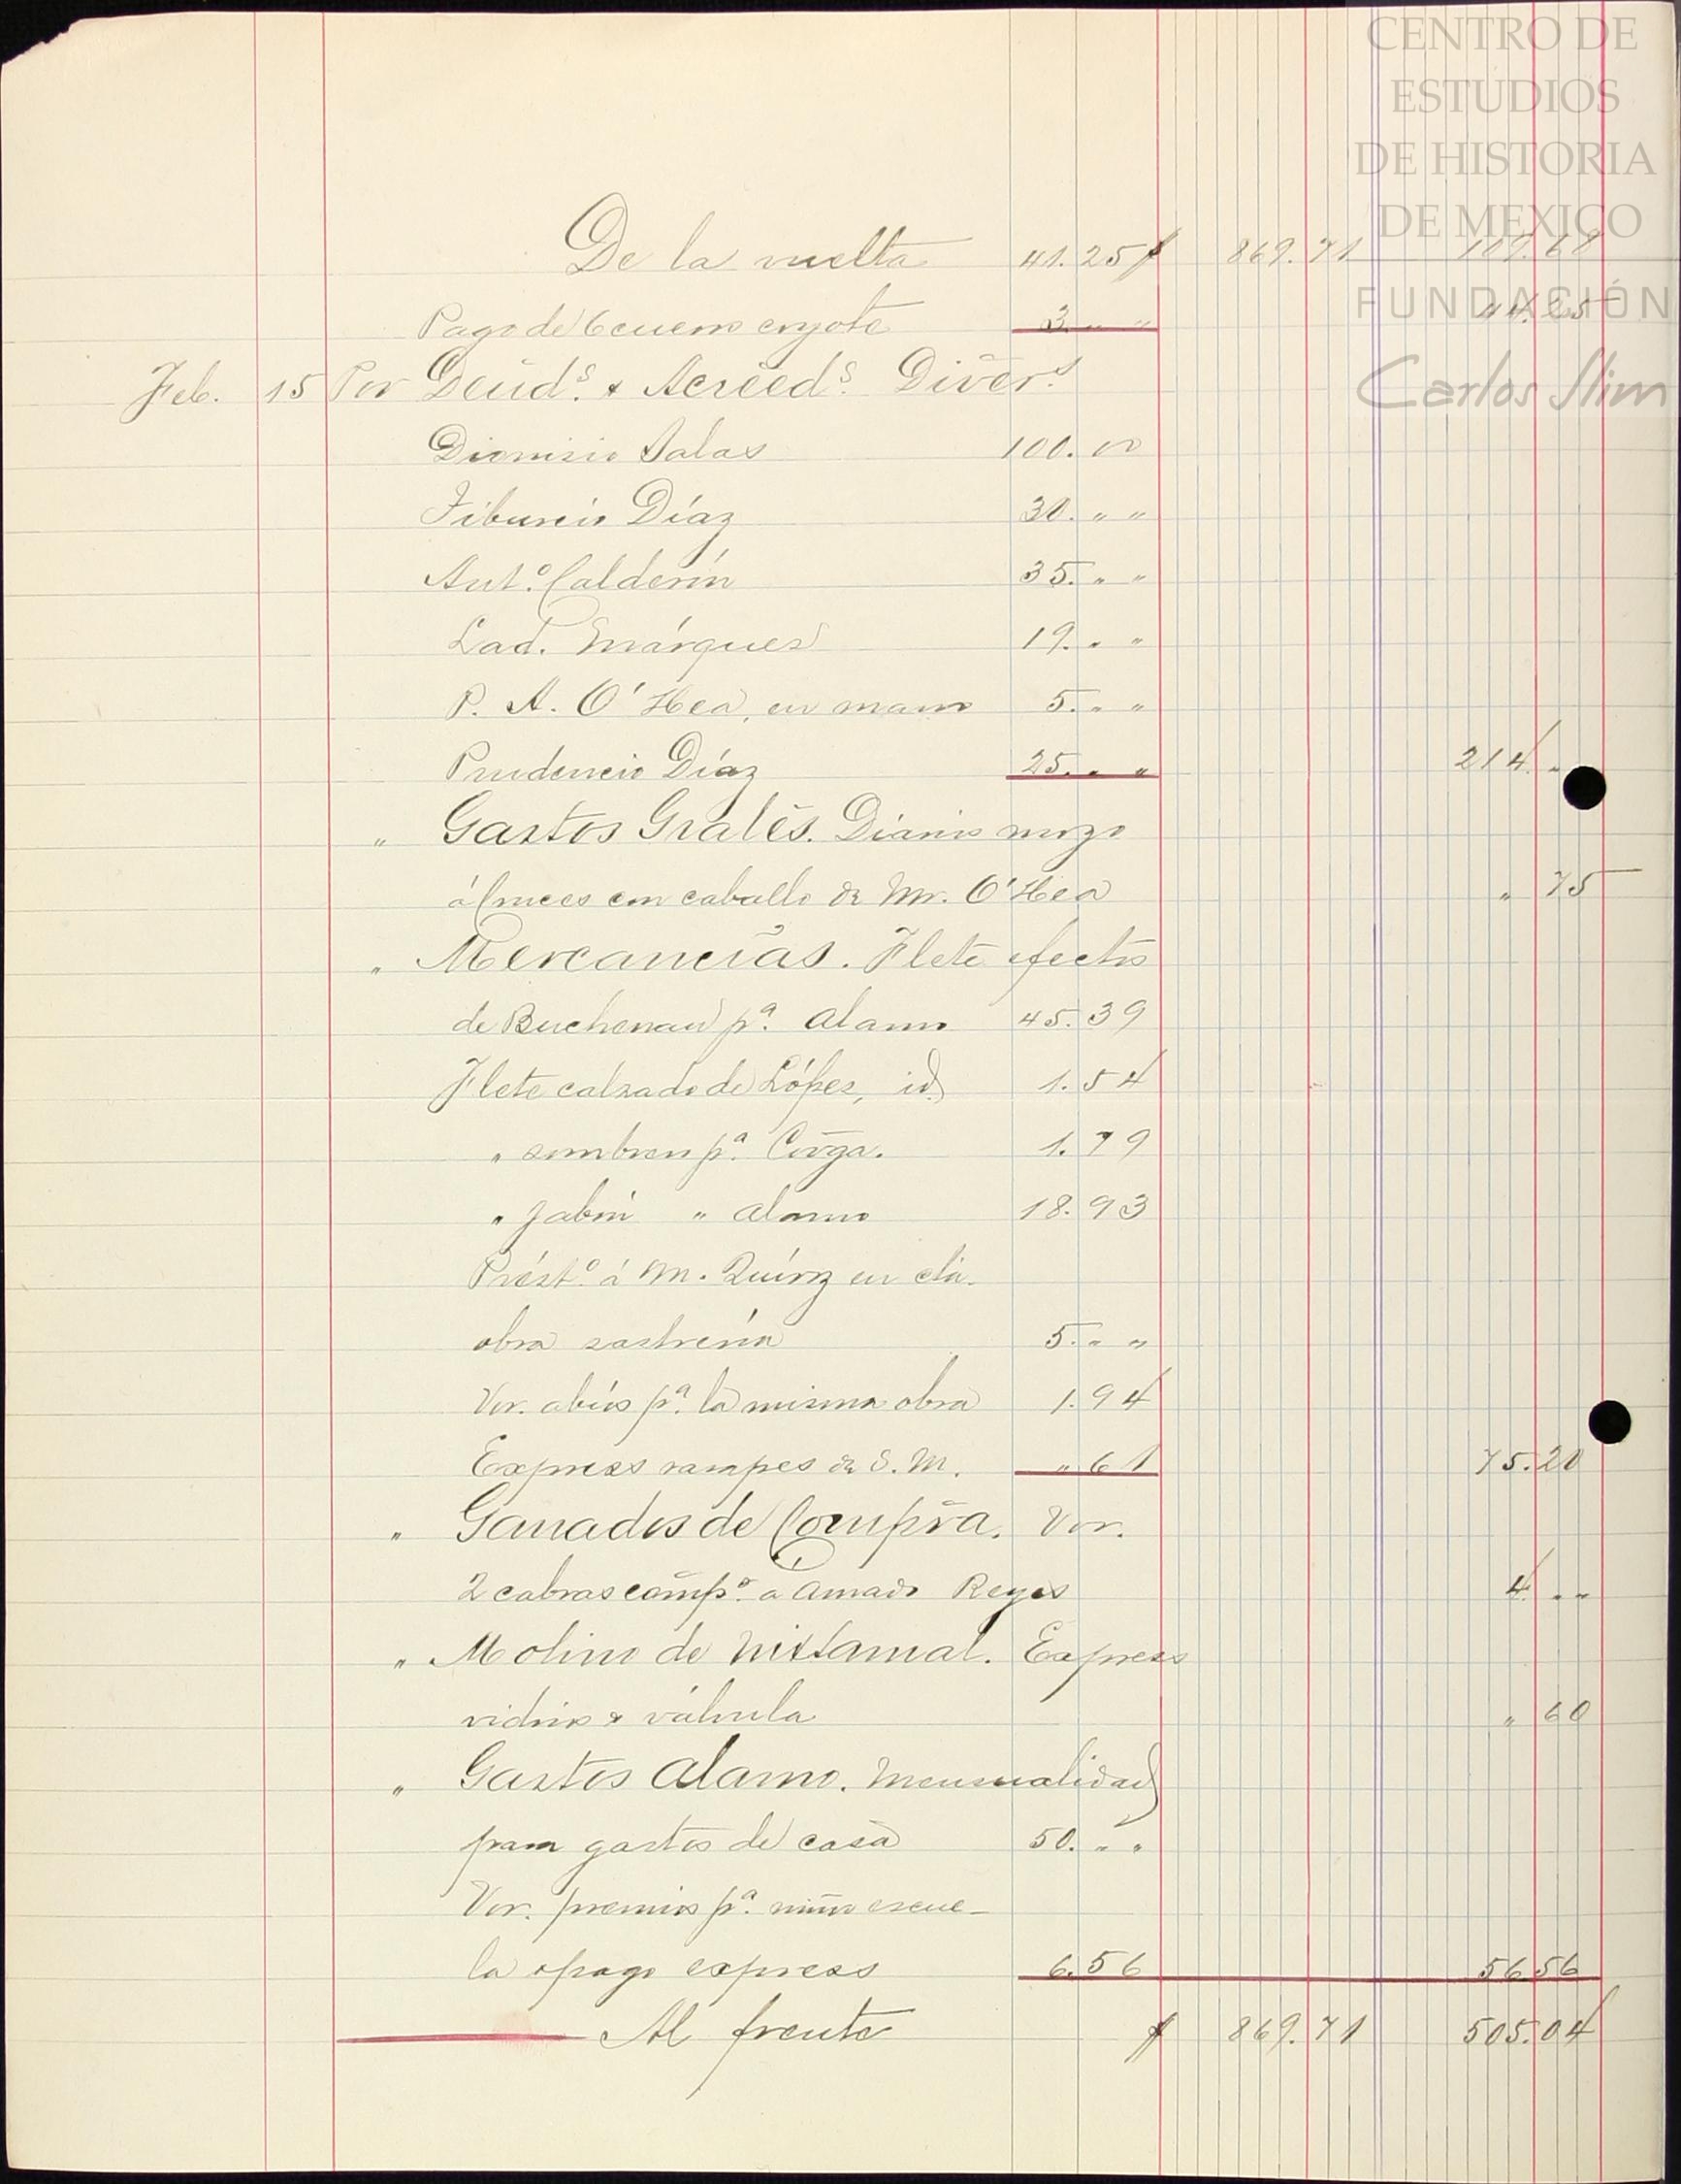 CENTRO DE
ESTUDIOS
DE HISTORIA
DE MEXICO
FUNDACIÓN
Carlos Slim
De la vuelta 41.25 $ 869.71 109.68
Pago de 6 cueros coyote 3. " " 44.25
Feb. 15 Por Deud.s & Acreed.s Divers.
Dionisio Salas 100.00
Tiburcio Díaz 30. " "
Ant.o Calderón 35. " "
Lad. Márquez 19. " "
P. A. O'Hea, en mano 5. " "
Prudencio Díaz 25. " " 214. "
" Gastos Grales. Diario mozo
á Cruces con caballo de Mr. O'Hea " 75
" Mercancías. Flete efectos
de Buchenau p.a Alamo 45.39
Flete calzado de López, id. 1.54
" sombreros p.a Corga. 1.79
" jabón " Alamo 18.93
Prést.o á M. Quiroz en cta.
obra sastrería 5. " "
Vor. avíos p.a la misma obra 1.94
Express de S. M. " 61 75.20
" Ganados de Compra. Vor.
2 cabras comp.s a Amado Reyes 4. " "
" Molino de Nixtamal. Express
vidrios & válvula " 60
" Gastos Alamo. Mensualidad
para gastos de casa 50. " "
Vor. premios p.a niños escue-
la & pago express 6.56 56.56
Al frente $ 869.71 505.04